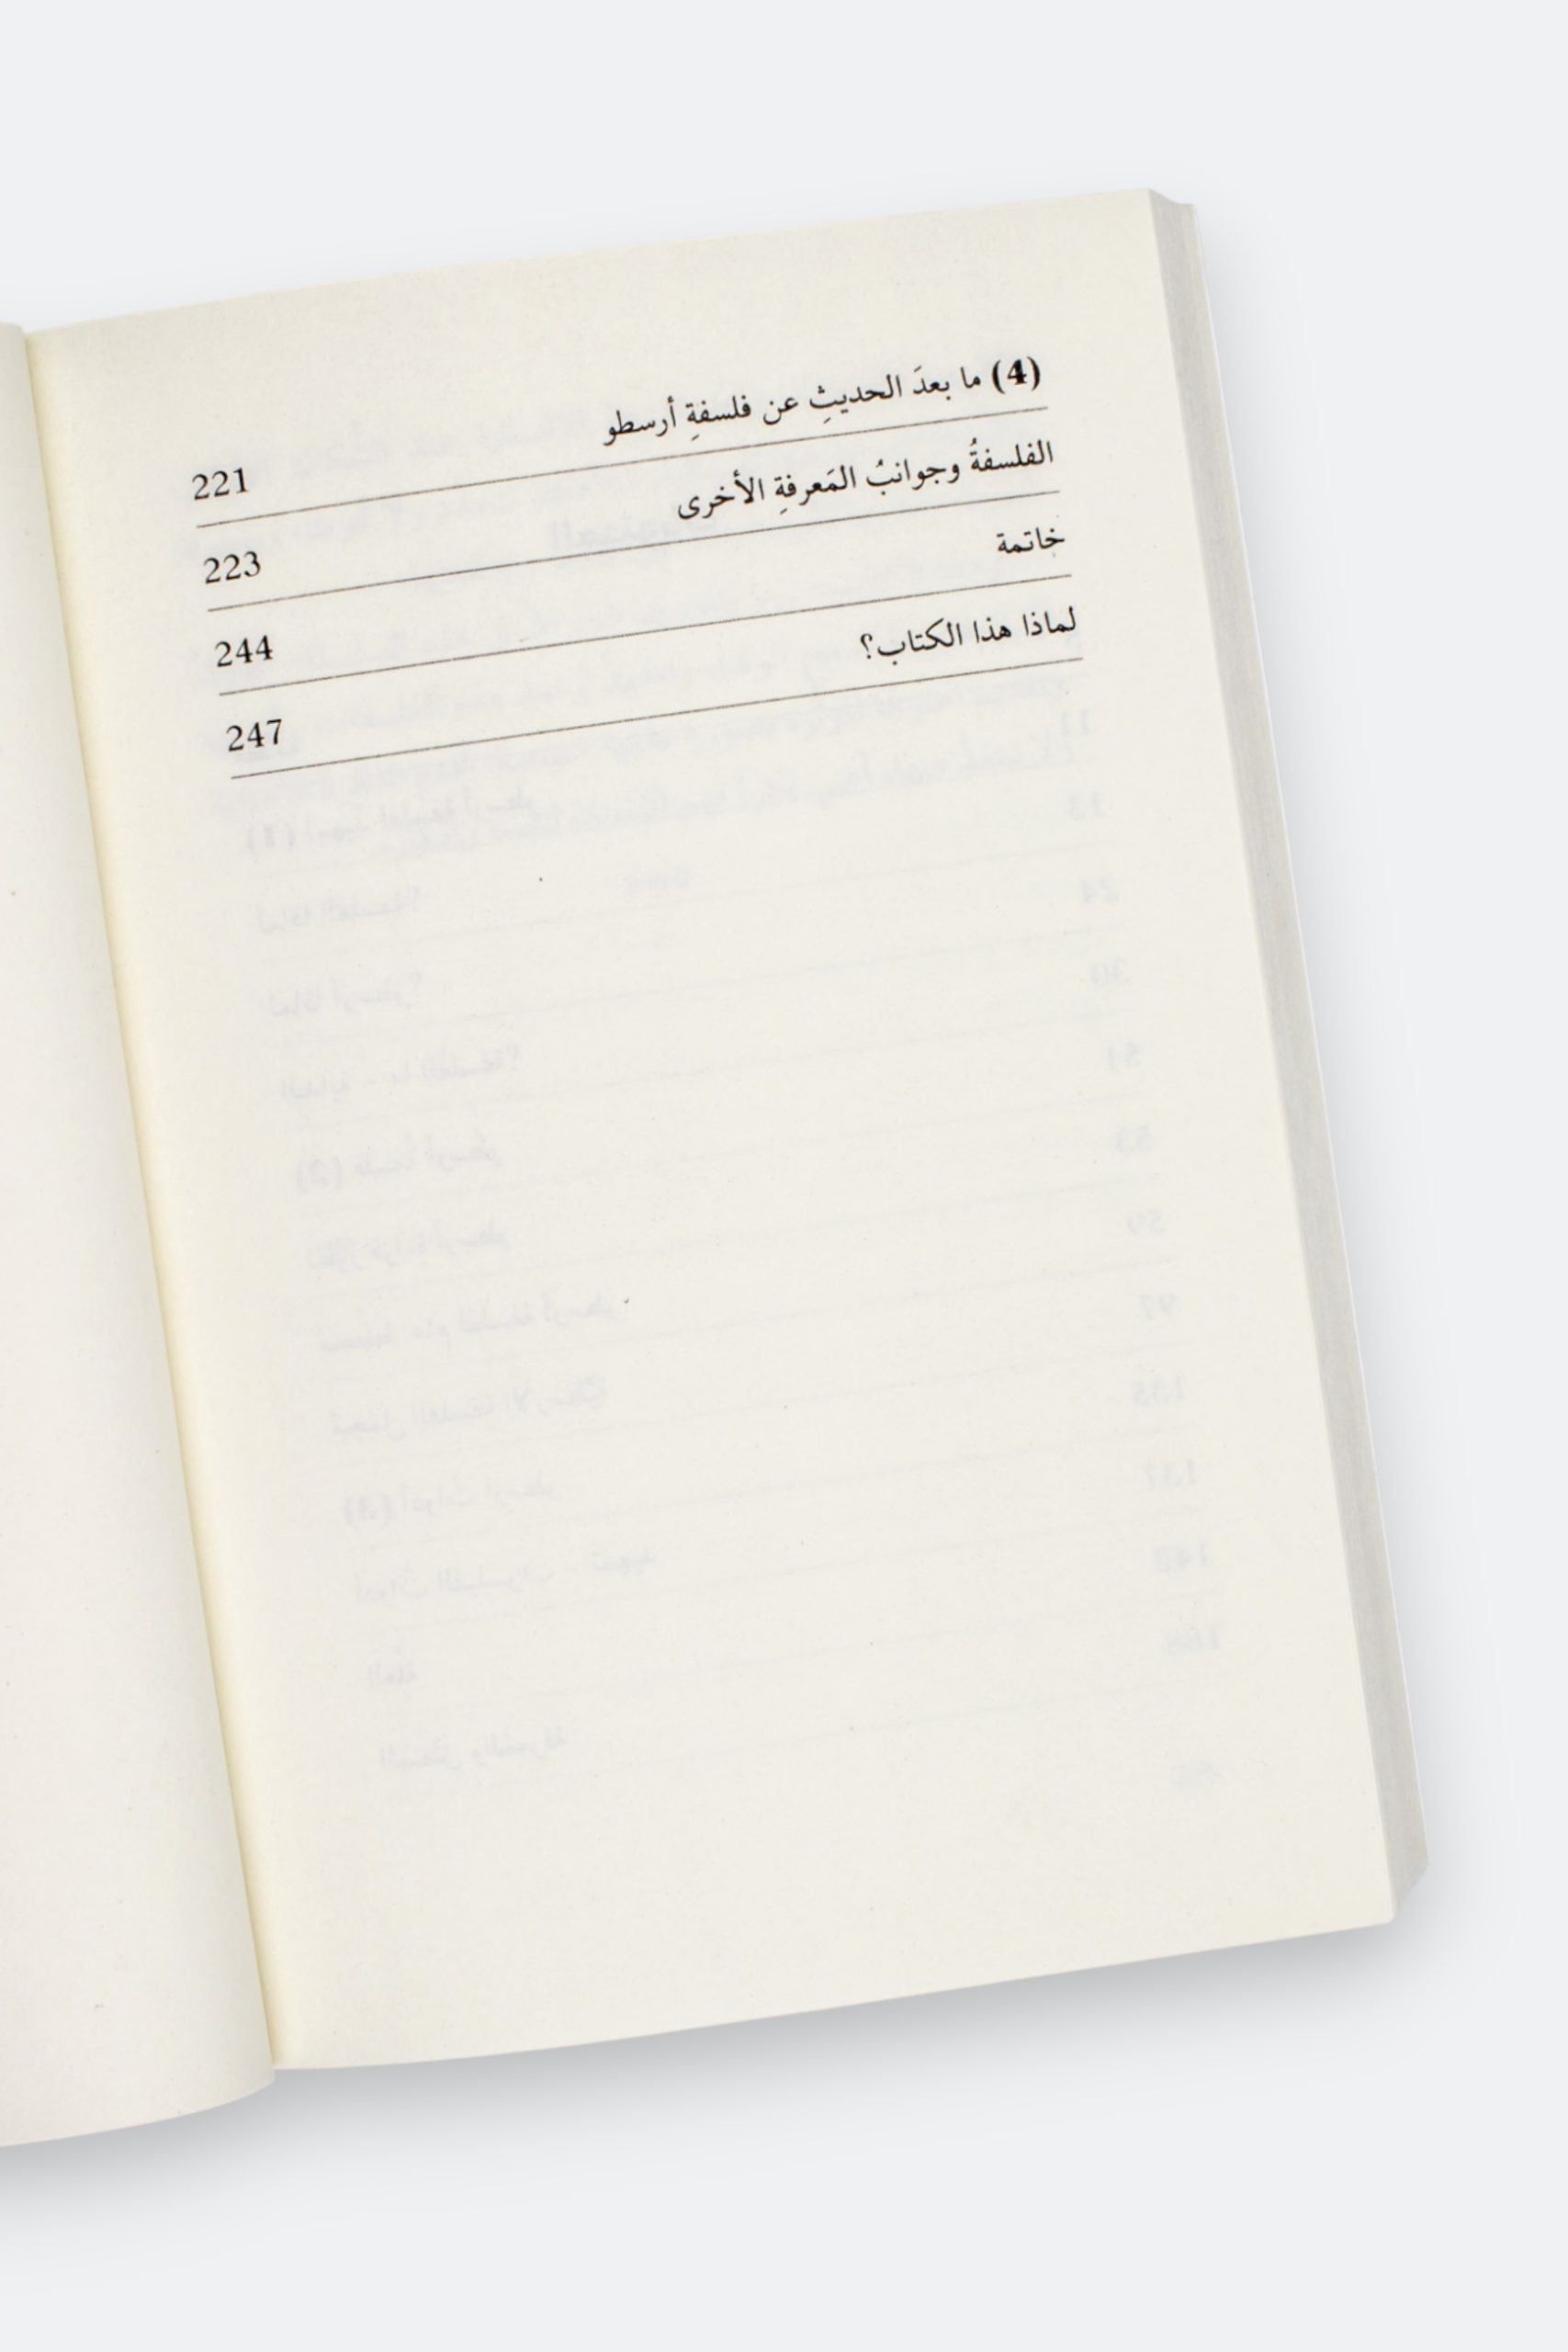 (4) ما بعدَ الحديثِ عن فلسفةِ أرسطو 221
الفلسفةُ وجوانبُ المَعرفةِ الأخرى 223
خاتمة 244
لماذا هذا الكتاب؟ 247